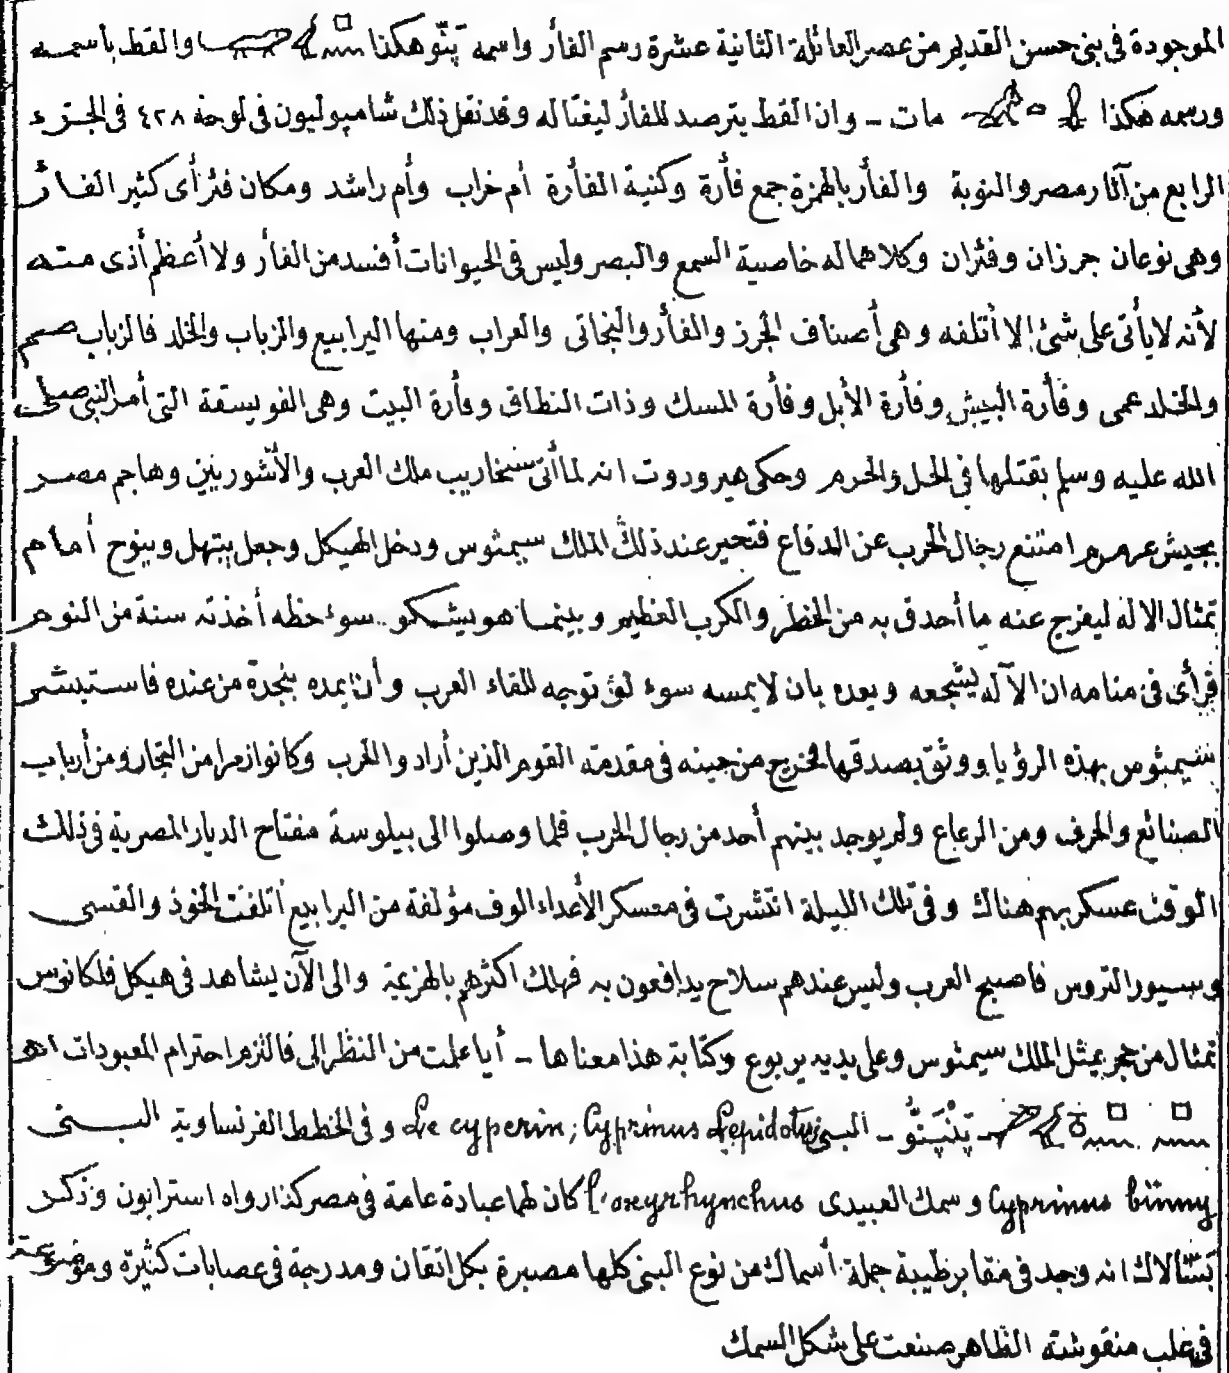 الموجودة فى بنى حسن القديم من عصر العائلة الثانية عشرة رسم الفأر واسمه پَنّو هكذا والقط باسمه
ورسمه هكذا مات - وان القط يترصد للفأر ليغتاله وقد نقل ذلك شامپوليون فى لوحة ٤٢٨ فى الجزء
الرابع من آثار مصر والنوبة والفأر بالهمزة جمع فأرة وكنية الفأرة أم خراب وأم راشد ومكان فئر أى كثير الفأر
وهى نوعان جرزان وفئران وكلاهما له خاصية السمع والبصر وليس فى الحيوانات أفسد من الفأر ولا أعظم أذى منه
لأنه لا يأتى على شئ إلا أتلفه وهى أصناف الجرز والفأر والبخاتى والعراب ومنها اليرابيع والزباب والخلد فالزباب صم
والخلد عمى وفأرة البيش وفأرة الأبل وفأرة المسك وذات النطاق وفأرة البيت وهى الفويسقة التى أمر النبى صلى
الله عليه وسلم بقتلها فى الحل والحرم وحكى هيرودوت انه لما أتى سنخاريب ملك العرب والأشوريين وهاجم مصر
بجيش عرمرم امتنع رجال الحرب عن الدفاع فتحير عند ذلك الملك سيمثوس ودخل الهيكل وجعل يبتهل وينوح أمام
تمثال الاله ليفرج عنه ما أحدق به من الخطر والكرب العظيم وبينما هو يشكو سوء حظه أخذته سنة من النوم
فرأى فى منامه ان الآله يشجعه ويعده بان لا يمسه سوء لو توجه للقاء العرب وأن يمده بنجدة من عنده فاستبشر
سيمثوس بهذه الرؤيا ووثق بصدقها فخرج من حينه فى مقدمة القوم الذين أرادوا الحرب وكانوا زمرا من التجار ومن أرباب
الصنائع والحرف ومن الرعاع ولم يوجد بينهم أحد من رجال الحرب فلما وصلوا الى بيلوسة مفتاح الديار المصرية فى ذلك
الوقت عسكر بهم هناك وفى تلك الليلة انتشرت فى معسكر الأعداء الوف مؤلفة من اليرابيع أتلفت الخوذ والقسى
وسيور التروس فاصبح العرب وليس عندهم سلاح يدافعون به فهلك اكثرهم بالهزيمة والى الآن يشاهد فى هيكل فلكانوس
تمثال من حجر يمثل الملك سيمثوس وعلى يديه يربوع وكتابة هذا معناها - أيا علمت من النظر الى فالتزم احترام المعبودات اهـ
پَنْپَنُّو - البنى Le cyperin; Cyprinus Lepidotus وفى الخطط الفرنساوية البنى
Cyprinus binny وسمك العبيدى l'oxyrhynchus كان لهما عبادة عامة فى مصر كذا رواه استرابون وذكر
بَسّالاك انه وجد فى مقابر طيبة جملة أسماك من نوع البنى كلها مصبرة بكل اتقان ومدرجة فى عصابات كثيرة وموضوعة
فى علب منقوشة الظاهر صنعت على شكل السمك